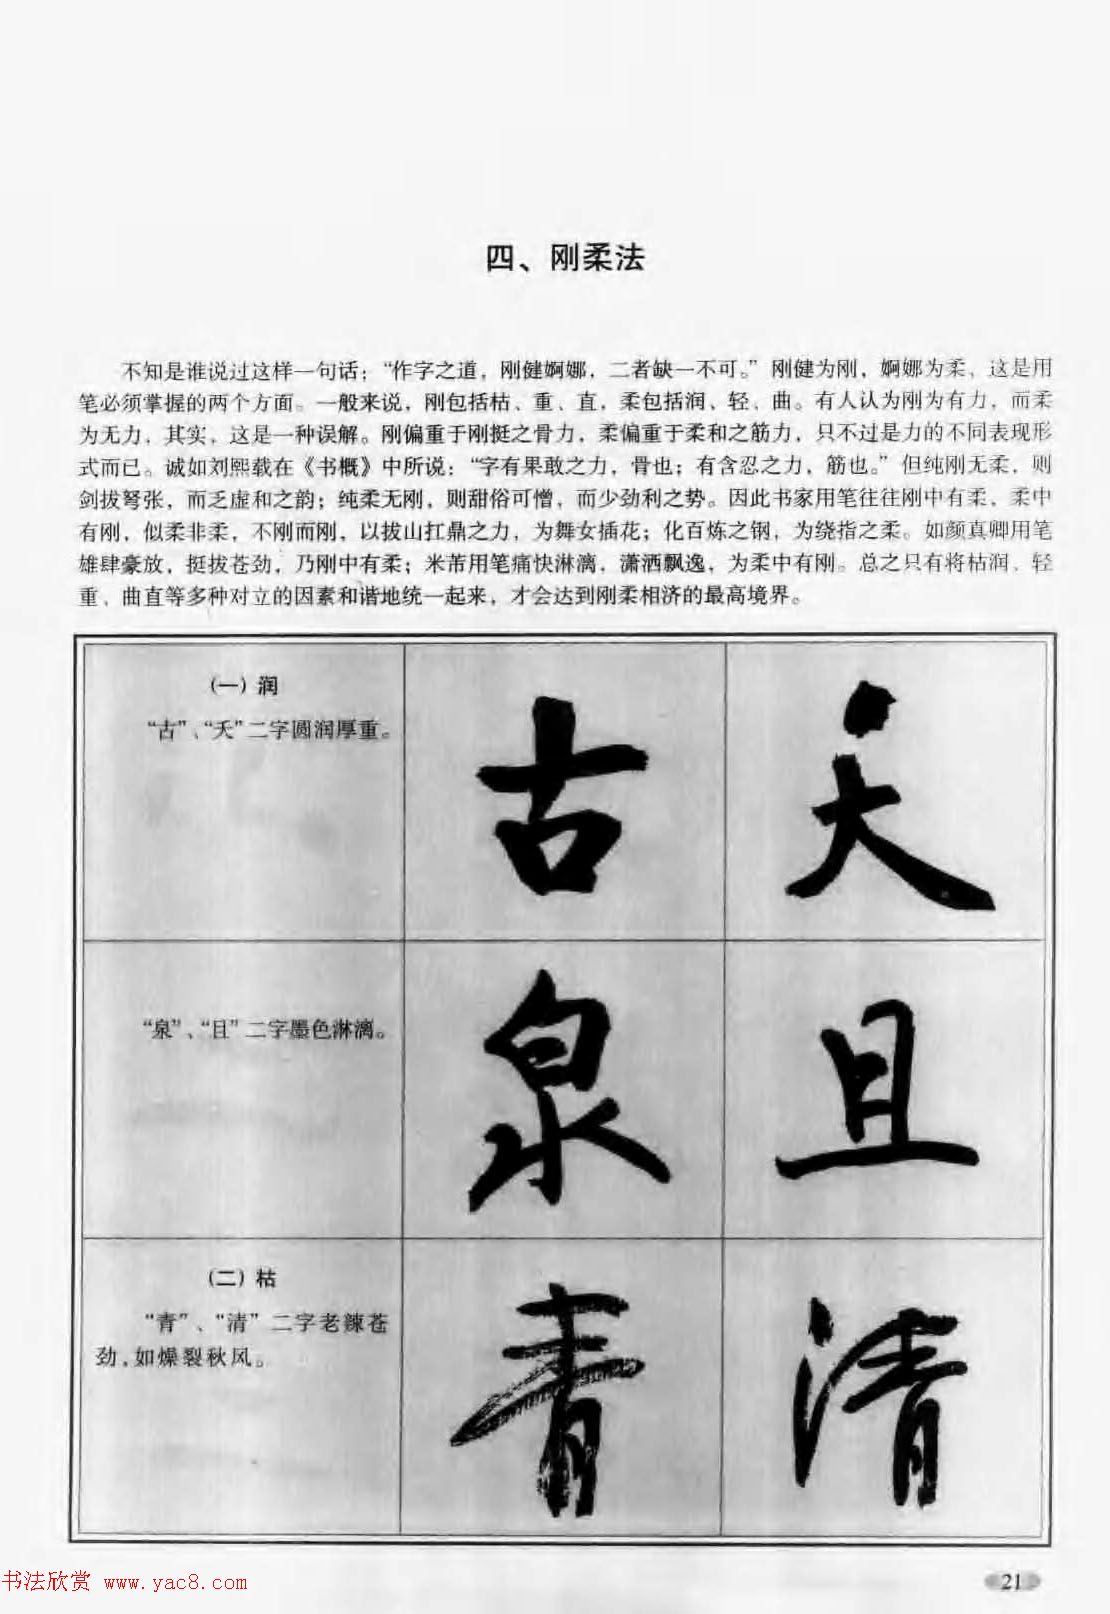 四、刚柔法
不知是谁说过这样一句话：“作字之道，刚健婀娜，二者缺一不可。”刚健为刚，婀娜为柔，这是用
笔必须掌握的两个方面。一般来说，刚包括枯、重、直，柔包括润、轻、曲。有人认为刚为有力，而柔
为无力，其实，这是一种误解。刚偏重于刚挺之骨力，柔偏重于柔和之筋力，只不过是力的不同表现形
式而已。诚如刘熙载在《书概》中所说：“字有果敢之力，骨也；有含忍之力，筋也。”但纯刚无柔，则
剑拔弩张，而乏虚和之韵；纯柔无刚，则甜俗可憎，而少劲利之势。因此书家用笔往往刚中有柔，柔中
有刚，似柔非柔，不刚而刚，以拔山扛鼎之力，为舞女插花；化百炼之钢，为绕指之柔。如颜真卿用笔
雄肆豪放，挺拔苍劲，乃刚中有柔；米芾用笔痛快淋漓，潇洒飘逸，为柔中有刚。总之只有将枯润、轻
重、曲直等多种对立的因素和谐地统一起来，才会达到刚柔相济的最高境界。
（一）润
“古”、“天”二字圆润厚重。
古 天
“泉”、“且”二字墨色淋漓。
泉 且
（二）枯
“青”、“清”二字老辣苍
劲，如燥裂秋风。
青 清
书法欣赏 www.yac8.com
21